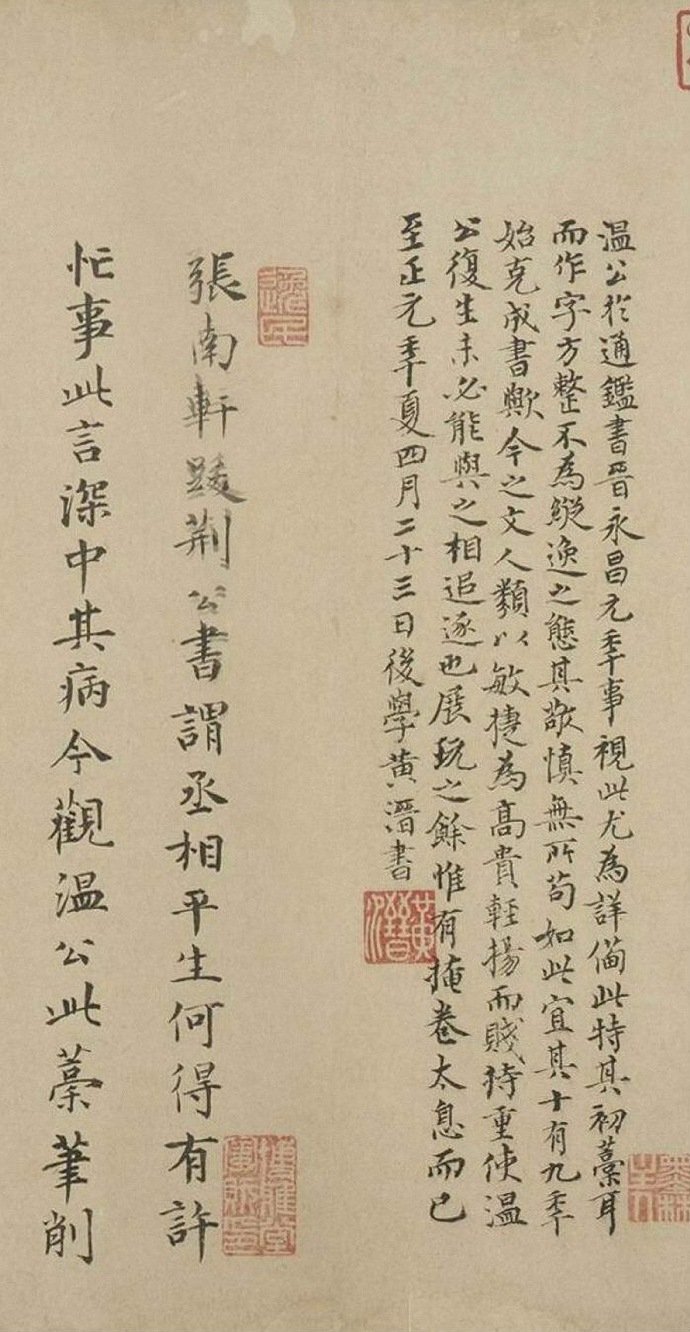 温公於通鑑書晉永昌元年事視此尤為詳備此特其初藁耳
而作字方整不為縱逸之態其敬慎無所苟如此宜其十有九年
始克成書歟今之文人類以敏捷為高貴輕揚而賤持重使温
公復生未必能與之相追逐也展玩之餘惟有掩卷太息而已
至正元年夏四月二十三日後學黄溍書
黄溍
張南軒跋荆公書謂丞相平生何得有許
忙事此言深中其病今觀温公此藁筆削